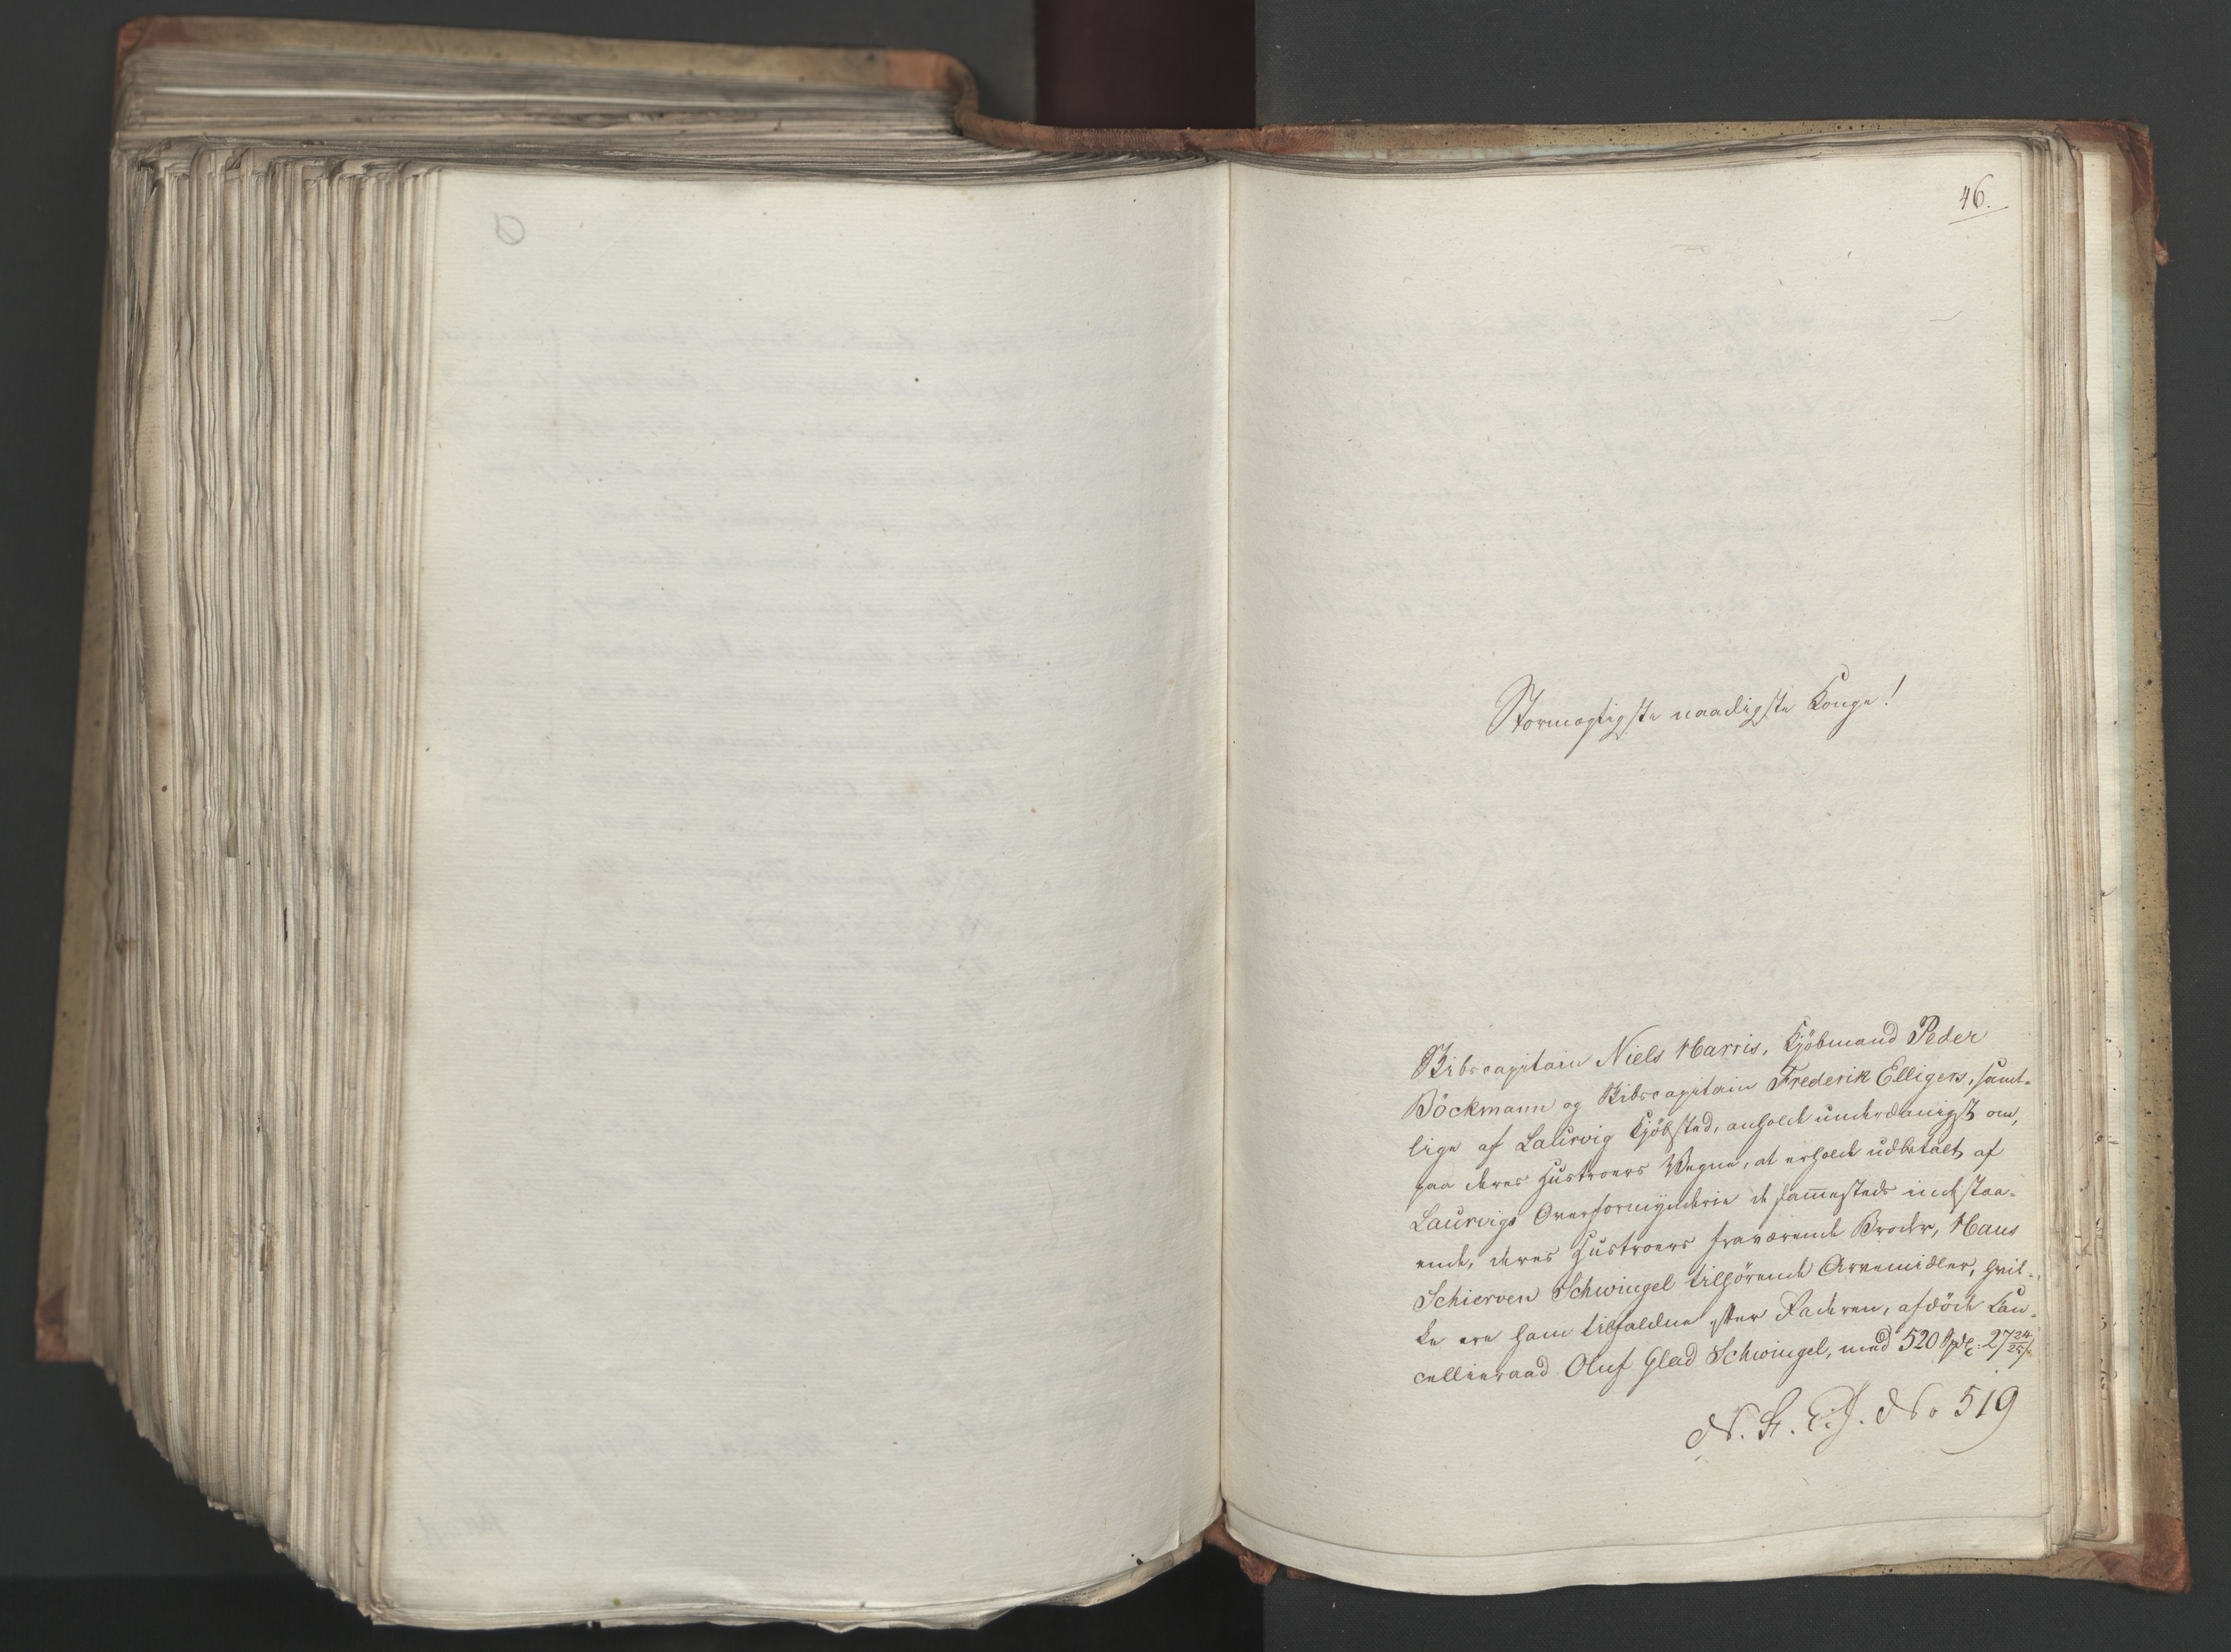 46.
Stormægtigste naadigste Konge!
Skibscapitain Niels Harris, Kjöbmand Peder
Böckmann og Skibscapitain Frederik Elligers, samt-
lige af Laurvig Kjöbstad, anholde underdanigst om,
paa deres Hustroers Vegne, at erholde udbetalt af
Laurvigs Overformynderie de sammesteds indestaa-
ende, deres Hustroers fraværende Broder, Hans
Schierven Schwingel tilhörende Arvemidler, hvil-
ke ere ham tilfaldne efter Faderen, afdöde Kan-
cellieraad Oluf Glad Schwingel, med 520 Spd: 27 24/25 s
N. S. E. J. No 519